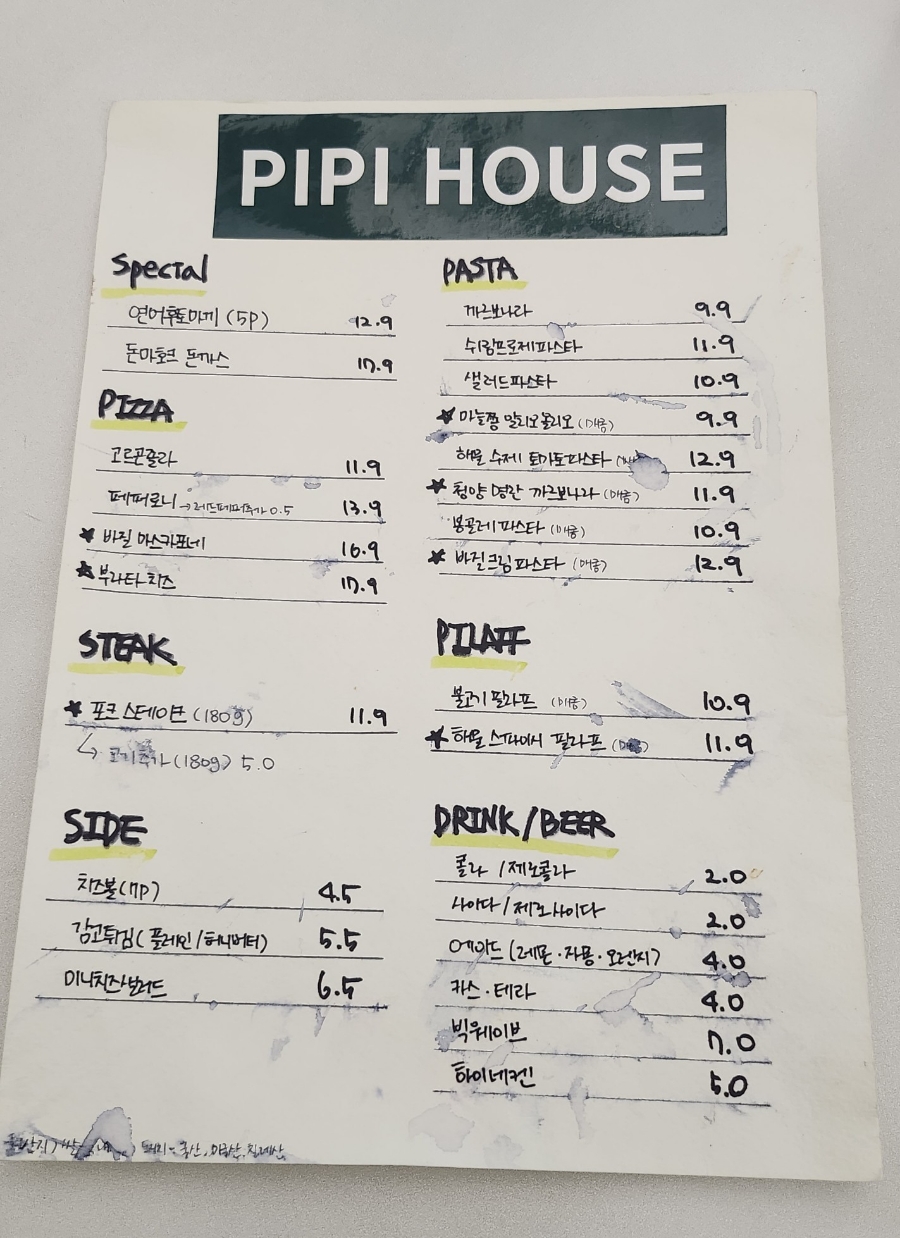 PIPI HOUSE
Special
연어후토마끼 (5P) 12.9
돈마호크 돈까스 17.9
PIZZA
고르곤졸라 11.9
페퍼로니 → 레드페퍼추가 0.5 13.9
★ 바질 마스카포네 16.9
★ 부라타 치즈 17.9
STEAK
★ 포크 스테이크 (180g) 11.9
↳ 고기추가 (180g) 5.0
SIDE
치즈볼 (7P) 4.5
감자튀김 (플레인/허니버터) 5.5
미니치즈샐러드 6.5
PASTA
까르보나라 9.9
쉬림프로제파스타 11.9
샐러드파스타 10.9
★ 마늘쫑 알리오올리오 (매콤) 9.9
해물 수제 토마토파스타 12.9
★ 청양 명란 까르보나라 (매콤) 11.9
봉골레 파스타 (매콤) 10.9
★ 바질크림파스타 (매콤) 12.9
PILAFF
불고기 필라프 (매콤) 10.9
★ 해물 스파이시 필라프 11.9
DRINK/BEER
콜라 / 제로콜라 2.0
사이다 / 제로사이다 2.0
에이드 (레몬·자몽·오렌지) 4.0
카스·테라 4.0
빅웨이브 7.0
하이네켄 5.0
돼지-국산, 미국산, 칠레산